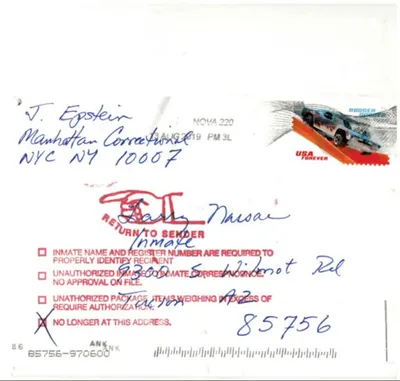 J. Epstein
Manhattan Correctional
NYC NY 10007
NOVA 220
AUG 2019 PM 3L
USA
FOREVER
RETURN TO SENDER
Larry Nassar
Inmate
9300 S Wilmot Rd
Tucson AZ
85756
INMATE NAME AND REGISTER NUMBER ARE REQUIRED TO
PROPERLY IDENTIFY RECIPIENT
UNAUTHORIZED INMATE TO INMATE CORRESPONDENCE.
NO APPROVAL ON FILE.
UNAUTHORIZED PACKAGE. ITEMS WEIGHING IN EXCESS OF
REQUIRE AUTHORIZATION.
X NO LONGER AT THIS ADDRESS.
86
ANK
ANK
85756-970600